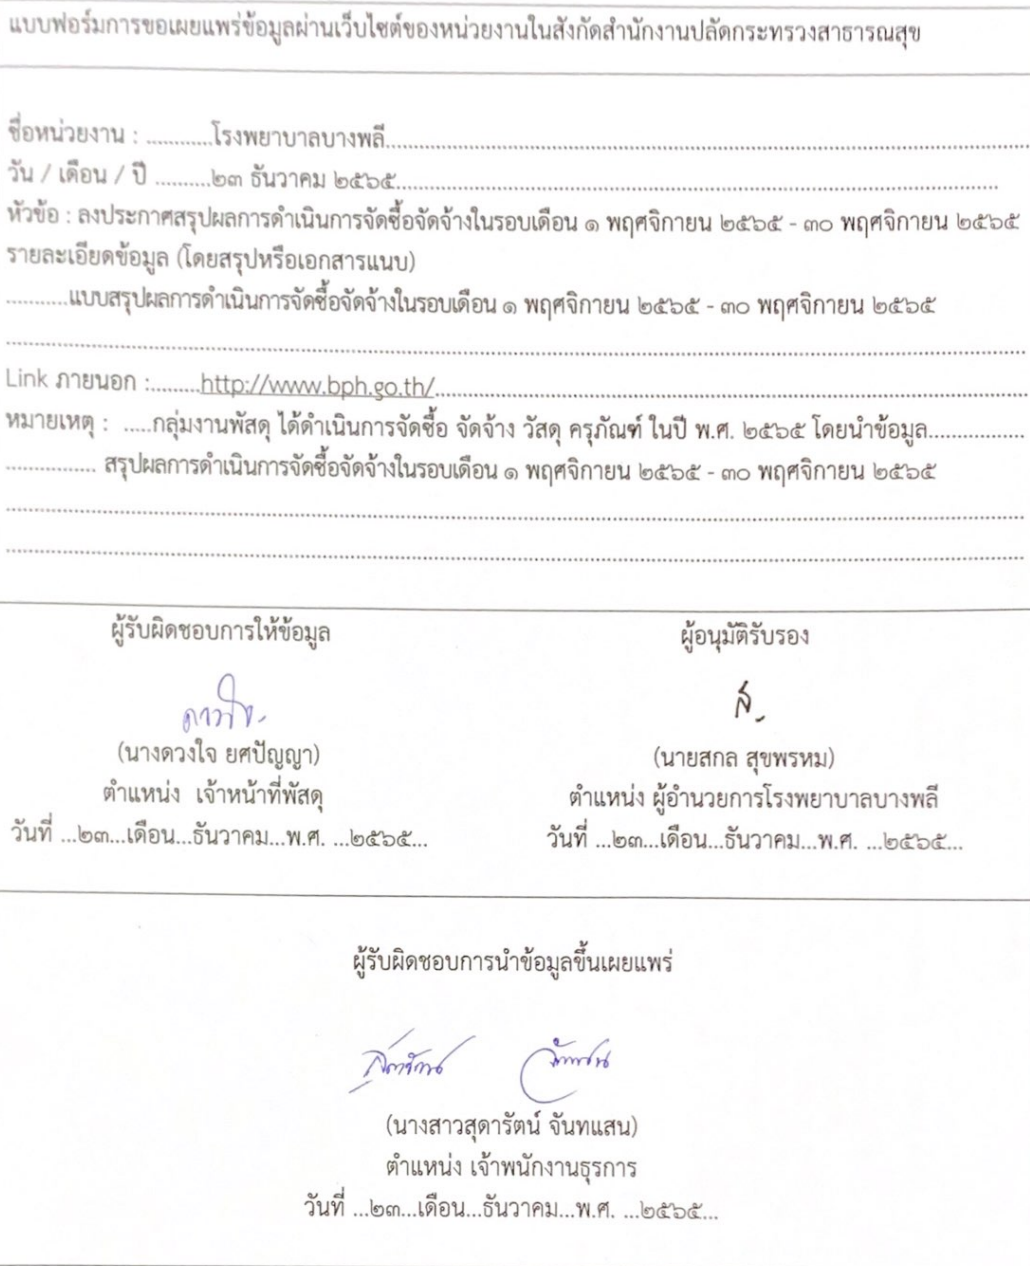 แบบฟอร์มการขอเผยแพร่ข้อมูลผ่านเว็บไซต์ของหน่วยงานในสังกัดสำนักงานปลัดกระทรวงสาธารณสุข
ชื่อหน่วยงาน : ............โรงพยาบาลบางพลี............
วัน / เดือน / ปี ..........๒๓ ธันวาคม ๒๕๖๕............
หัวข้อ : ลงประกาศสรุปผลการดำเนินการจัดซื้อจัดจ้างในรอบเดือน ๑ พฤศจิกายน ๒๕๖๕ - ๓๐ พฤศจิกายน ๒๕๖๕
รายละเอียดข้อมูล (โดยสรุปหรือเอกสารแนบ)
...........แบบสรุปผลการดำเนินการจัดซื้อจัดจ้างในรอบเดือน ๑ พฤศจิกายน ๒๕๖๕ - ๓๐ พฤศจิกายน ๒๕๖๕
Link ภายนอก :.........http://www.bph.go.th/............
หมายเหตุ : .....กลุ่มงานพัสดุ ได้ดำเนินการจัดซื้อ จัดจ้าง วัสดุ ครุภัณฑ์ ในปี พ.ศ. ๒๕๖๕ โดยนำข้อมูล.................
................ สรุปผลการดำเนินการจัดซื้อจัดจ้างในรอบเดือน ๑ พฤศจิกายน ๒๕๖๕ - ๓๐ พฤศจิกายน ๒๕๖๕
ผู้รับผิดชอบการให้ข้อมูล
(นางดวงใจ ยศปัญญา)
ตำแหน่ง เจ้าหน้าที่พัสดุ
วันที่ ...๒๓...เดือน...ธันวาคม...พ.ศ. ...๒๕๖๕...
ผู้อนุมัติรับรอง
(นายสกล สุขพรหม)
ตำแหน่ง ผู้อำนวยการโรงพยาบาลบางพลี
วันที่ ...๒๓...เดือน...ธันวาคม...พ.ศ. ...๒๕๖๕...
ผู้รับผิดชอบการนำข้อมูลขึ้นเผยแพร่
(นางสาวสุดารัตน์ จันทแสน)
ตำแหน่ง เจ้าพนักงานธุรการ
วันที่ ...๒๓...เดือน...ธันวาคม...พ.ศ. ...๒๕๖๕...